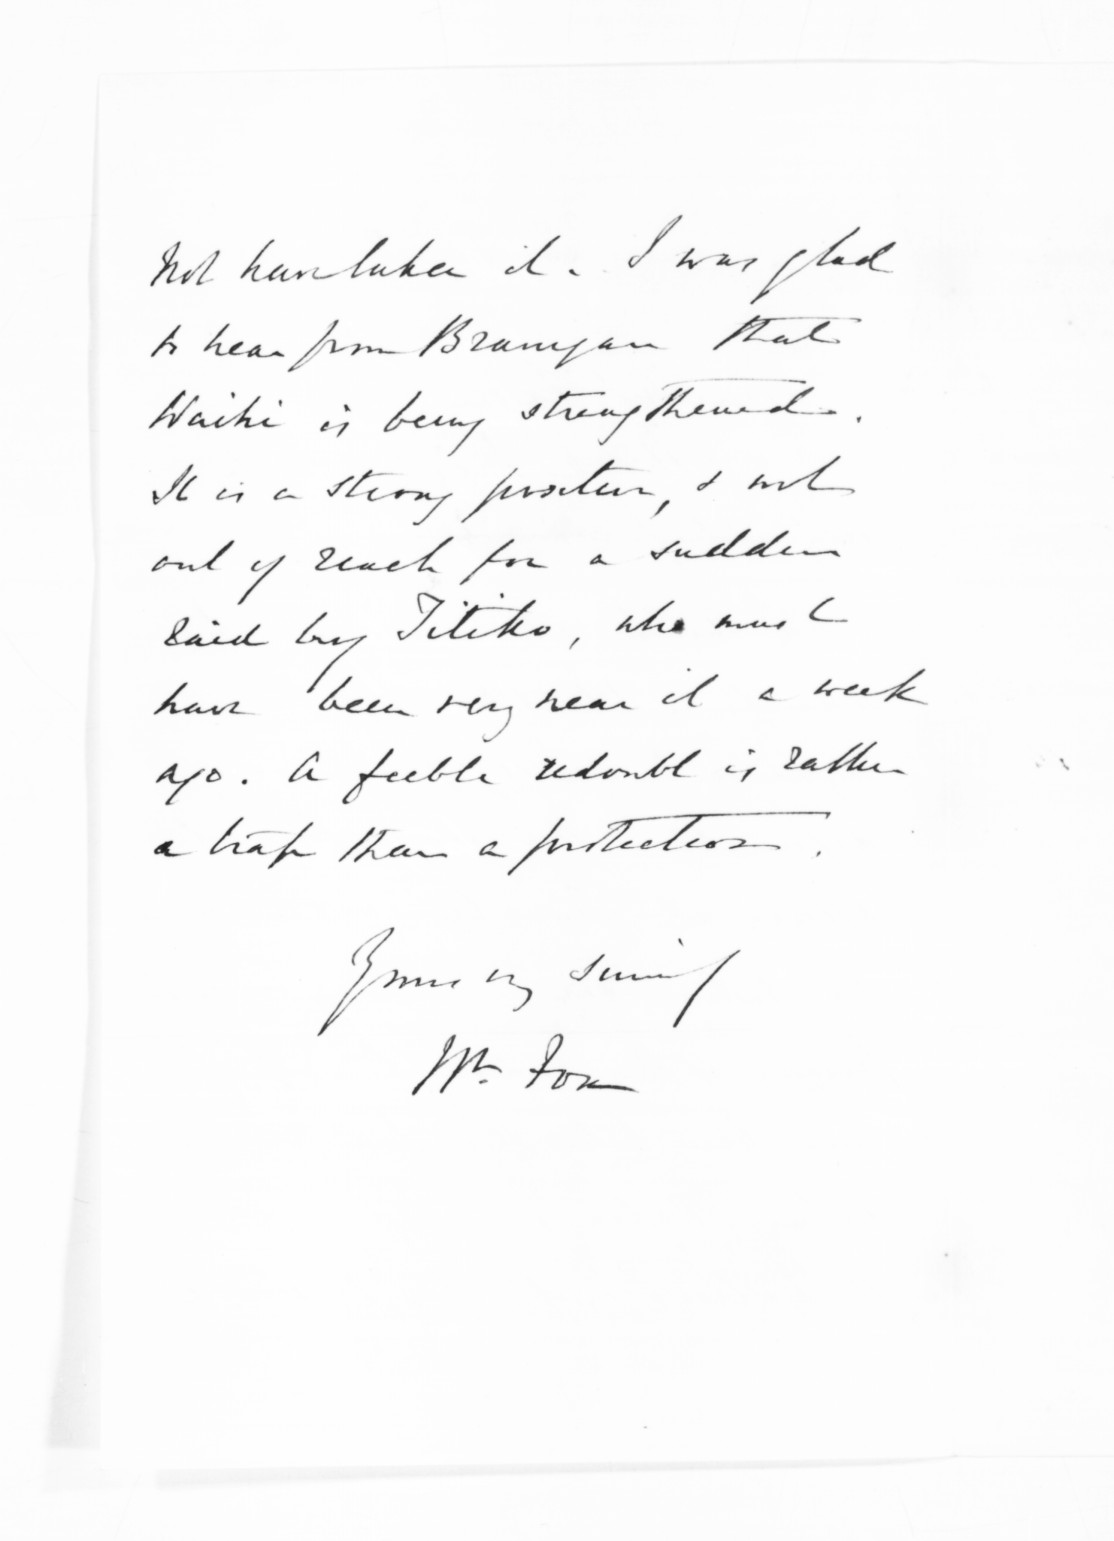 not have taken it. I was glad
to hear from Branigan that
Waihi is being strengthened.
It is a strong position, & not
out of reach for a sudden
raid by Titoko, who must
have been very near it a week
ago. A feeble redoubt is rather
a trap than a protection.
Yours vy sincy
Wm. Fox